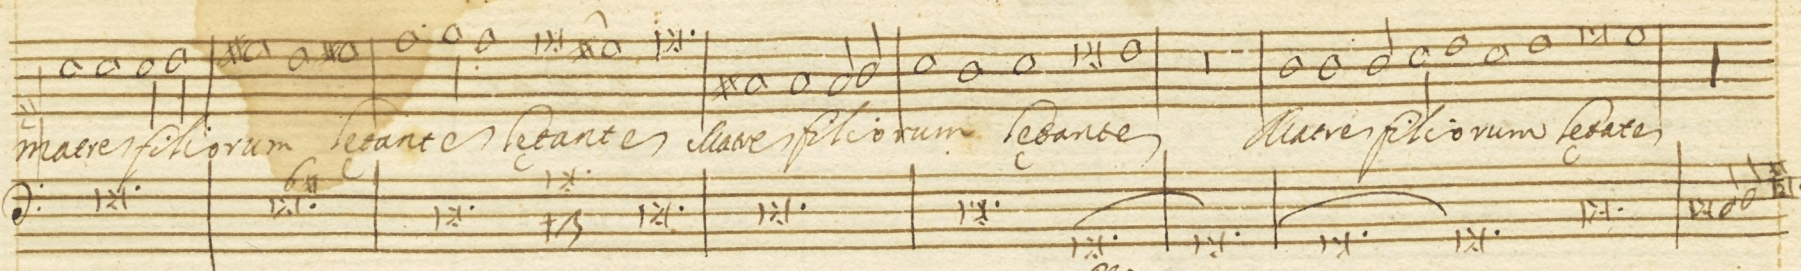 matres filiorum lętantes lętantes Matres filiorum lętantes Matres filiorum lętātes
6